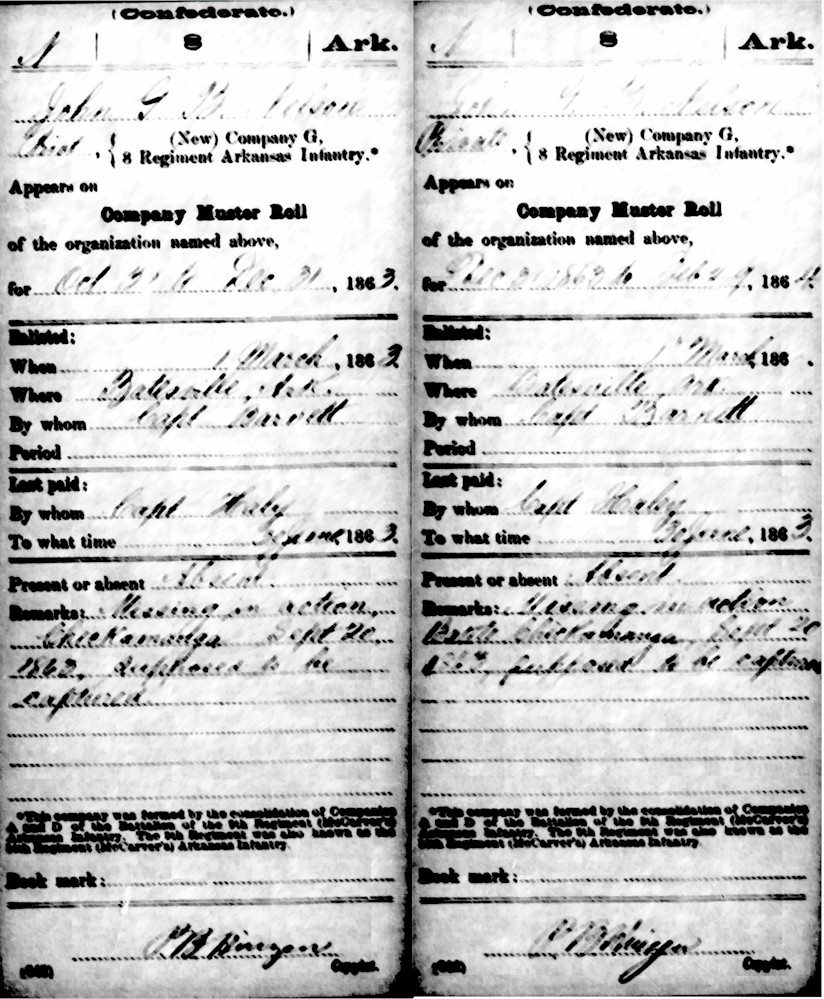 (Confederate.)
N | 8 | Ark.
John G B Nelson
Privt , { (New) Company G,
8 Regiment Arkansas Infantry.*
Appears on
Company Muster Roll
of the organization named above,
for Oct 31 to Dec 31 , 1863.
Enlisted:
When 1 March , 1863
Where Batesville, Ark.
By whom Capt Barnett
Period
Last paid:
By whom Capt Haley
To what time 30 June 1863.
Present or absent Absent
Remarks: Missing in action,
Chickamauga Sept 20,
1863, supposed to be
captured
*This company was formed by the consolidation of Companies
A and D of the Battalion of the 8th Regiment (McCarver's)
Arkansas Infantry. The 8th Regiment was also known as the
Regiment (McCarver's) Arkansas Infantry.
Book mark:
(642) Copyist.
(Confederate.)
N | 8 | Ark.
John G B Nelson
Private , { (New) Company G,
8 Regiment Arkansas Infantry.*
Appears on
Company Muster Roll
of the organization named above,
for Dec 31 1863 to Feb 29, 1864.
Enlisted:
When 1 March, 186 .
Where Batesville Ark.
By whom Capt Barnett
Period
Last paid:
By whom Capt Haley
To what time 30 June, 1863.
Present or absent Absent
Remarks: Missing in action
Battle Chickamauga, Sept 20
1863, supposed to be captured
*This company was formed by the consolidation of Companies
A and D of the Battalion of the 8th Regiment (McCarver's)
Arkansas Infantry. The 8th Regiment was also known as the
Regiment (McCarver's) Arkansas Infantry.
Book mark:
(642) Copyist.